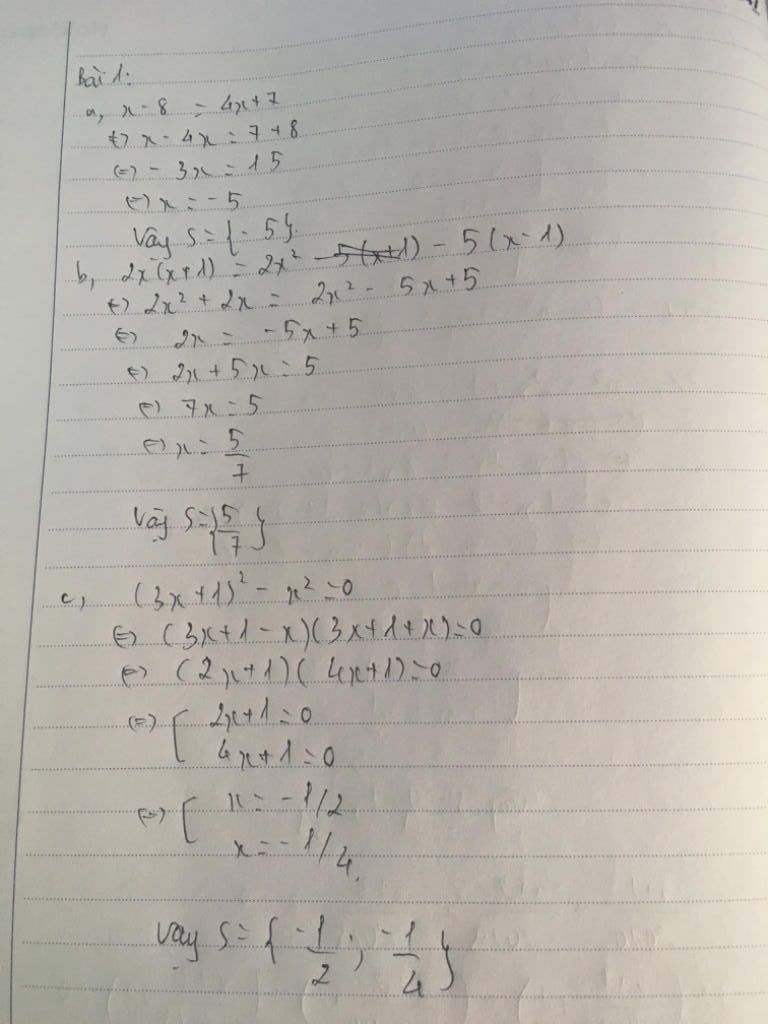 Bài 1:
a, x - 8 = 4x + 7
⇔ x - 4x = 7 + 8
⇔ - 3x = 15
⇔ x = - 5
Vậy S = {- 5}.
b, 2x(x + 1) = 2x² - 5(x + 1) - 5(x - 1)
⇔ 2x² + 2x = 2x² - 5x + 5
⇔ 2x = -5x + 5
⇔ 2x + 5x = 5
⇔ 7x = 5
⇔ x = 5/7
Vậy S = {5/7}
c, (3x + 1)² - x² = 0
⇔ (3x + 1 - x)(3x + 1 + x) = 0
⇔ (2x + 1)(4x + 1) = 0
⇔ [ 2x + 1 = 0
4x + 1 = 0
⇔ [ x = -1/2
x = -1/4.
Vậy S = {-1/2 ; -1/4}